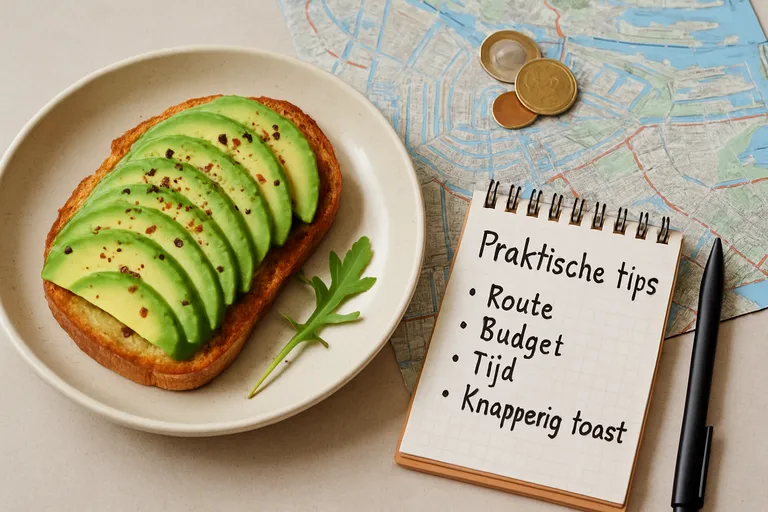 Praktische tips
• Route
• Budget
• Tijd
• Knapperig toast